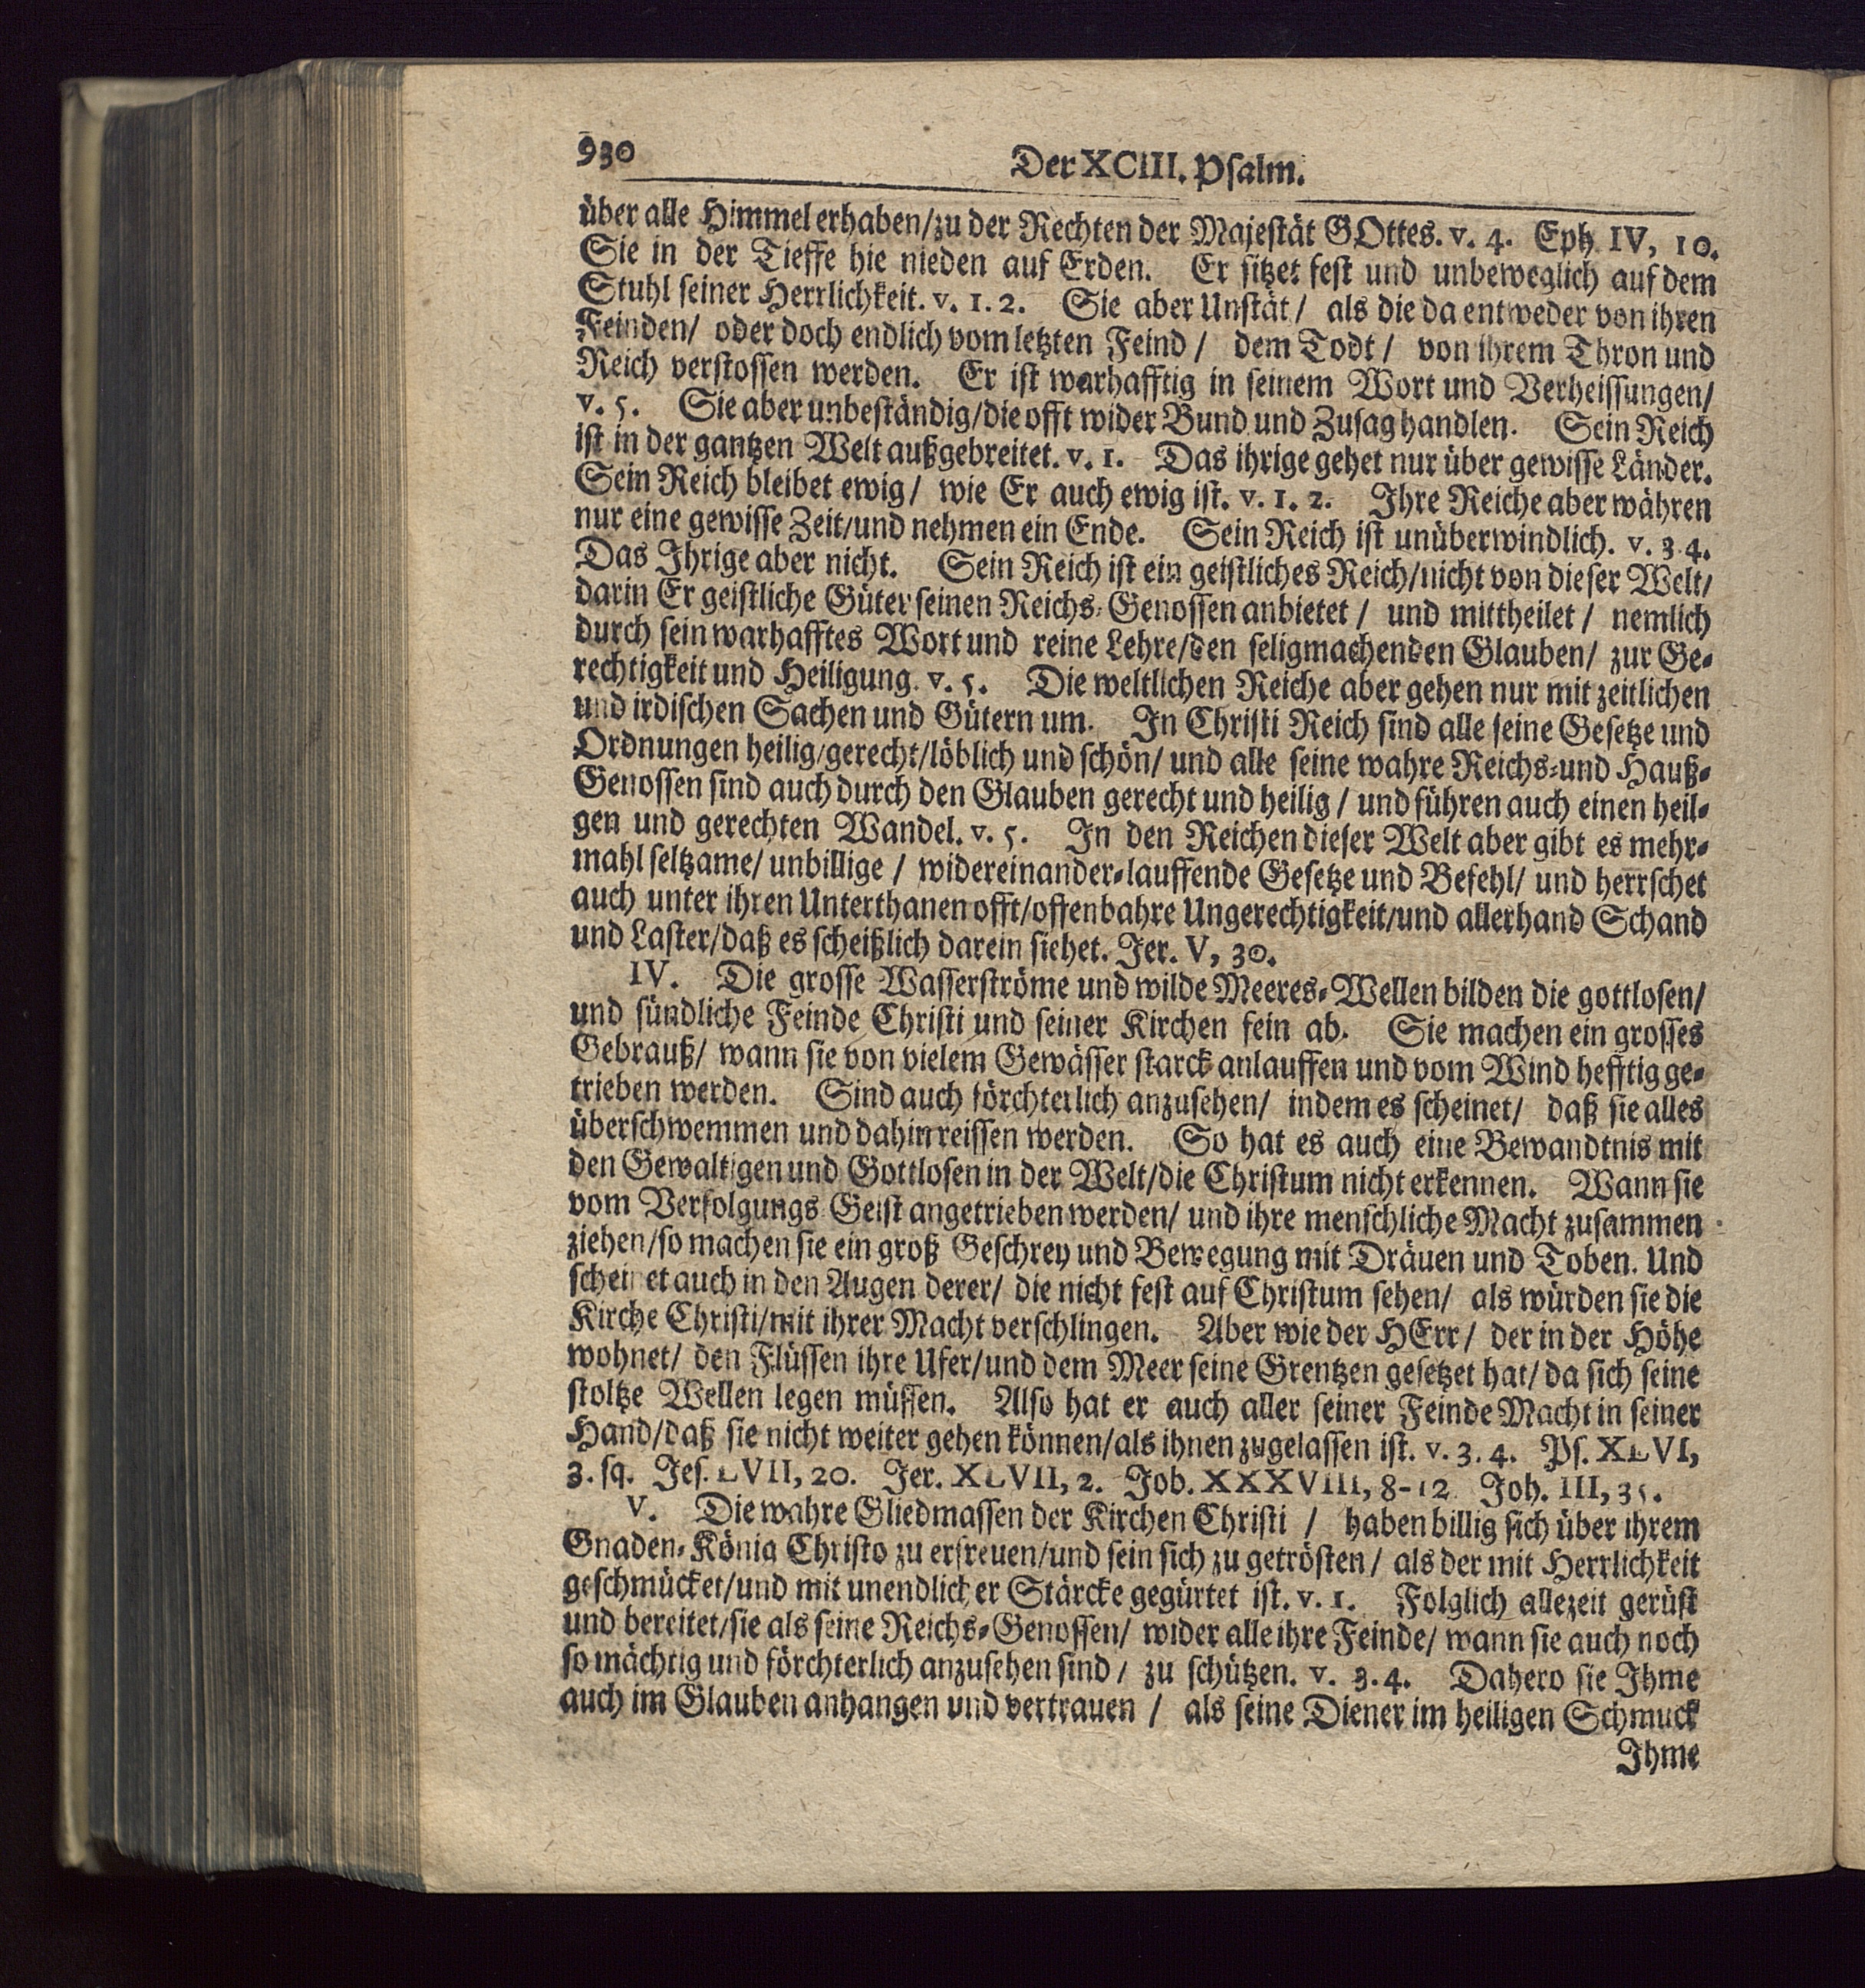 930
Der XCIII. Psalm.
über alle Himmel erhaben/zu der Rechten der Majestät GOttes. v. 4. Eph. IV, 10.
Sie in der Tieffe hie nieden auf Erden. Er sitzet fest und unbeweglich auf dem
Stuhl seiner Herrlichkeit. v. 1. 2. Sie aber Unstät/ als die da entweder von ihren
Feinden/ oder doch endlich vom letzten Feind / dem Todt / von ihrem Thron und
Reich verstossen werden. Er ist warhafftig in seinem Wort und Verheissungen/
v. 5. Sie aber unbeständig/die offt wider Bund und Zusag handlen. Sein Reich
ist in der gantzen Welt außgebreitet. v. 1. Das ihrige gehet nur über gewisse Länder.
Sein Reich bleibet ewig / wie Er auch ewig ist. v. 1. 2. Ihre Reiche aber währen
nur eine gewisse Zeit/und nehmen ein Ende. Sein Reich ist unüberwindlich. v. 3. 4.
Das Ihrige aber nicht. Sein Reich ist ein geistliches Reich/nicht von dieser Welt/
darin Er geistliche Güter seinen Reichs-Genossen anbietet / und mittheilet / nemlich
durch sein warhafftes Wort und reine Lehre/den seligmachenden Glauben/ zur Ge-
rechtigkeit und Heiligung. v. 5. Die weltlichen Reiche aber gehen nur mit zeitlichen
und irdischen Sachen und Gütern um. In Christi Reich sind alle seine Gesetze und
Ordnungen heilig/gerecht/löblich und schön/ und alle seine wahre Reichs-und Hauß-
Genossen sind auch durch den Glauben gerecht und heilig / und führen auch einen heil-
gen und gerechten Wandel. v. 5. In den Reichen dieser Welt aber gibt es mehr-
mahl seltzame/ unbillige / widereinander-lauffende Gesetze und Befehl/ und herrschet
auch unter ihren Unterthanen offt/offenbahre Ungerechtigkeit/und allerhand Schand
und Laster/daß es scheißlich darein siehet. Jer. V, 30.
IV. Die grosse Wasserströme und wilde Meeres-Wellen bilden die gottlosen/
und sündliche Feinde Christi und seiner Kirchen fein ab. Sie machen ein grosses
Gebrauß/ wann sie von vielem Gewässer starck anlauffen und vom Wind hefftig ge-
trieben werden. Sind auch förchterlich anzusehen/ indem es scheinet/ daß sie alles
überschwemmen und dahin reissen werden. So hat es auch eine Bewandtnis mit
den Gewaltigen und Gottlosen in der Welt/die Christum nicht erkennen. Wann sie
vom Verfolgungs-Geist angetrieben werden/ und ihre menschliche Macht zusammen
ziehen/so machen sie ein groß Geschrey und Bewegung mit Dräuen und Toben. Und
scheinet auch in den Augen derer/ die nicht fest auf Christum sehen/ als würden sie die
Kirche Christi/mit ihrer Macht verschlingen. Aber wie der HErr / der in der Höhe
wohnet/ den Flüssen ihre Ufer/und dem Meer seine Grentzen gesetzet hat/ da sich seine
stoltze Wellen legen müssen. Also hat er auch aller seiner Feinde Macht in seiner
Hand/daß sie nicht weiter gehen können/als ihnen zugelassen ist. v. 3. 4. Ps. XLVI,
3. sq. Jes. LVII, 20. Jer. XLVII, 2. Job. XXXVIII, 8-12 Joh. III, 35.
V. Die wahre Gliedmassen der Kirchen Christi / haben billig sich über ihrem
Gnaden-König Christo zu erfreuen/und sein sich zu getrösten / als der mit Herrlichkeit
geschmücket/und mit unendlicher Stärcke gegürtet ist. v. 1. Folglich allezeit gerüst
und bereitet/sie als seine Reichs-Genossen/ wider alle ihre Feinde/ wann sie auch noch
so mächtig und förchterlich anzusehen sind / zu schützen. v. 3. 4. Dahero sie Ihme
auch im Glauben anhangen und vertrauen / als seine Diener im heiligen Schmuck
Ihme